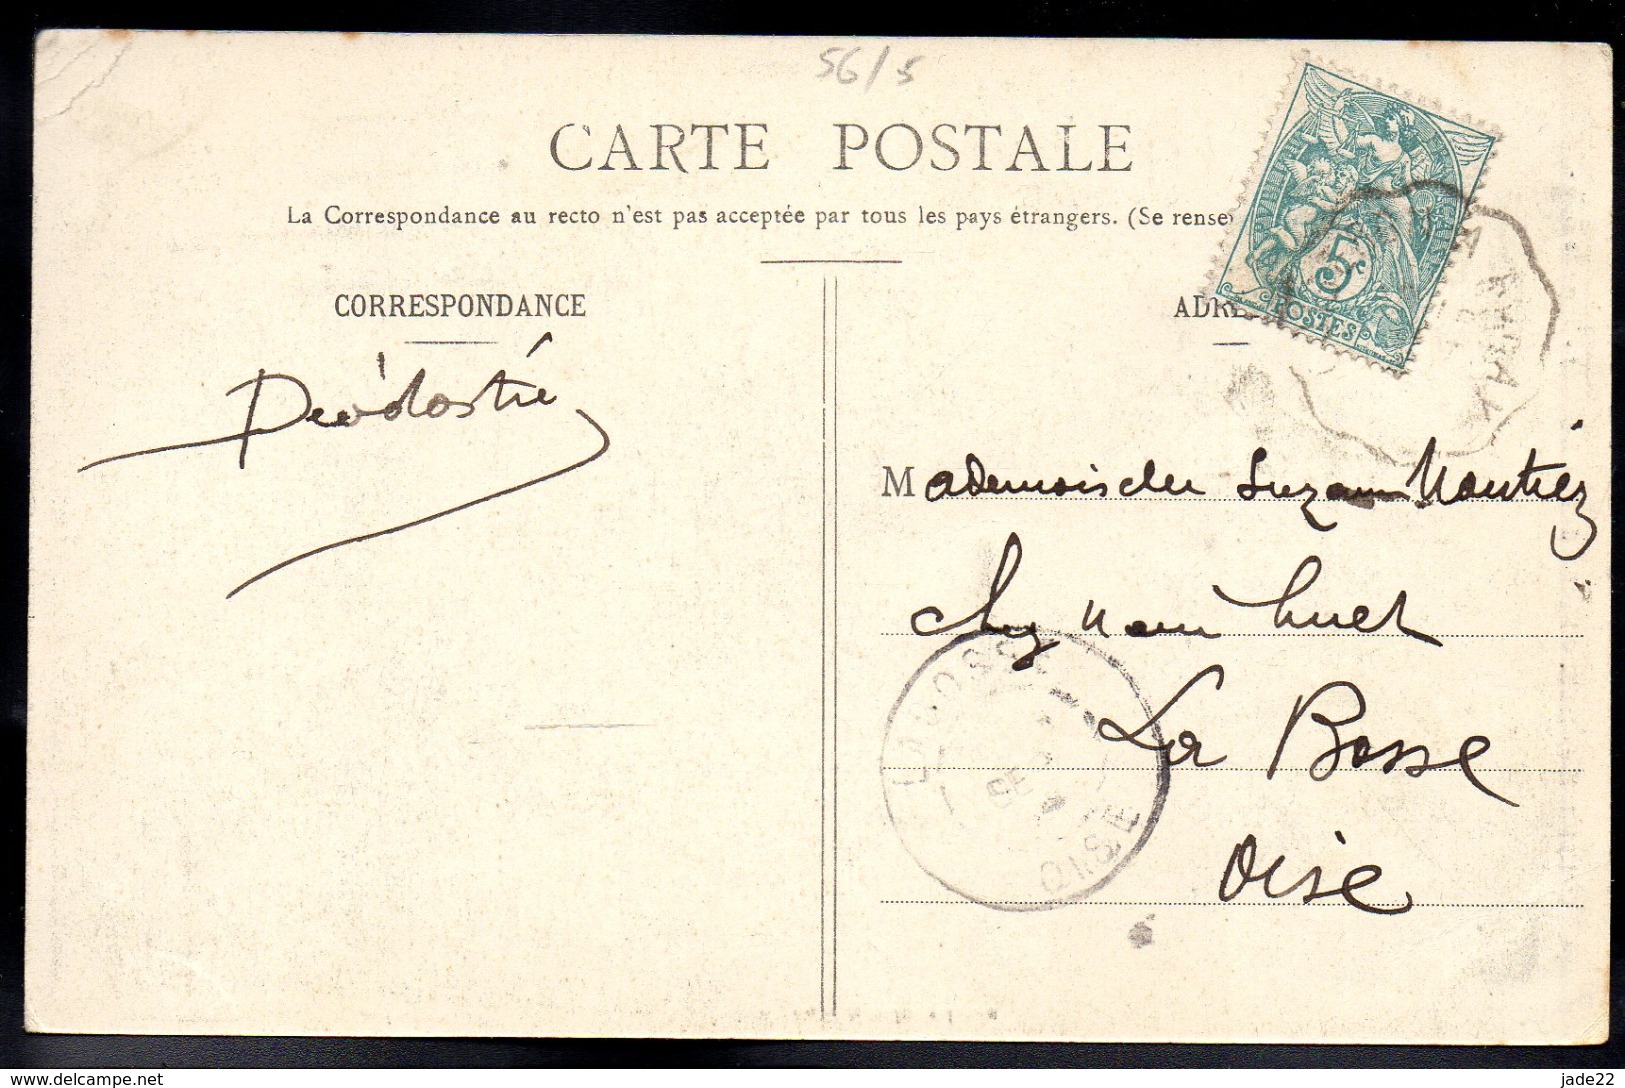 56/5
CARTE POSTALE
La Correspondance au recto n'est pas acceptée par tous les pays étrangers. (Se rense
CORRESPONDANCE
ADRE
5c
POSTES
Mademoiselle Suzanne
chez
Huet
La Bosse
Oise
LA BOSSE
OISE
delcampe.net
jade22